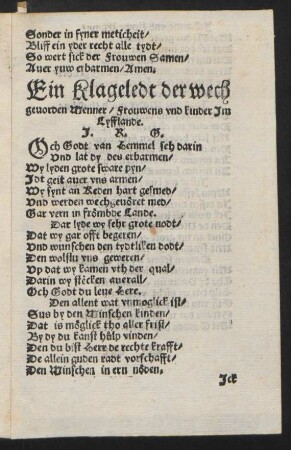 Sonder in syner meticheit/
Bliff ein yder recht alle tydt/
So wert sick der Frouwen Samen/
Auer yuw erbarmen/ Amen.
Ein Klageledt der wech
geuorden Menner/ Frouwens vnd kinder Im
Lyfflande.
J. R. G.
Och Godt van Hemmel seh darin
Vnd lat dy des erbarmen/
Wy lyden grote sware pyn/
Idt geit auer vns armen/
Wy synt an Keden hart gesmed/
Vnd werden wechgeuöret med/
Gar vern in frömbde Lande.
Dar lyde wy sehr grote nodt/
Dat wy gar offt begeren/
Vnd wünschen den tydtliken dodt/
Den wolstu vns geweren/
Vp dat wy kamen vth der qual/
Darin wy stecken auerall/
Och Godt du leue Here.
Den allent wat vnmöglick ist/
Sus by den Minschen kinden/
Dat is möglick tho aller frist/
By dy du kanst hülp vinden/
Den du bist Herr de rechte krafft/
De allein guden radt vorschafft/
Den Minschen in ern nöden.
Ick